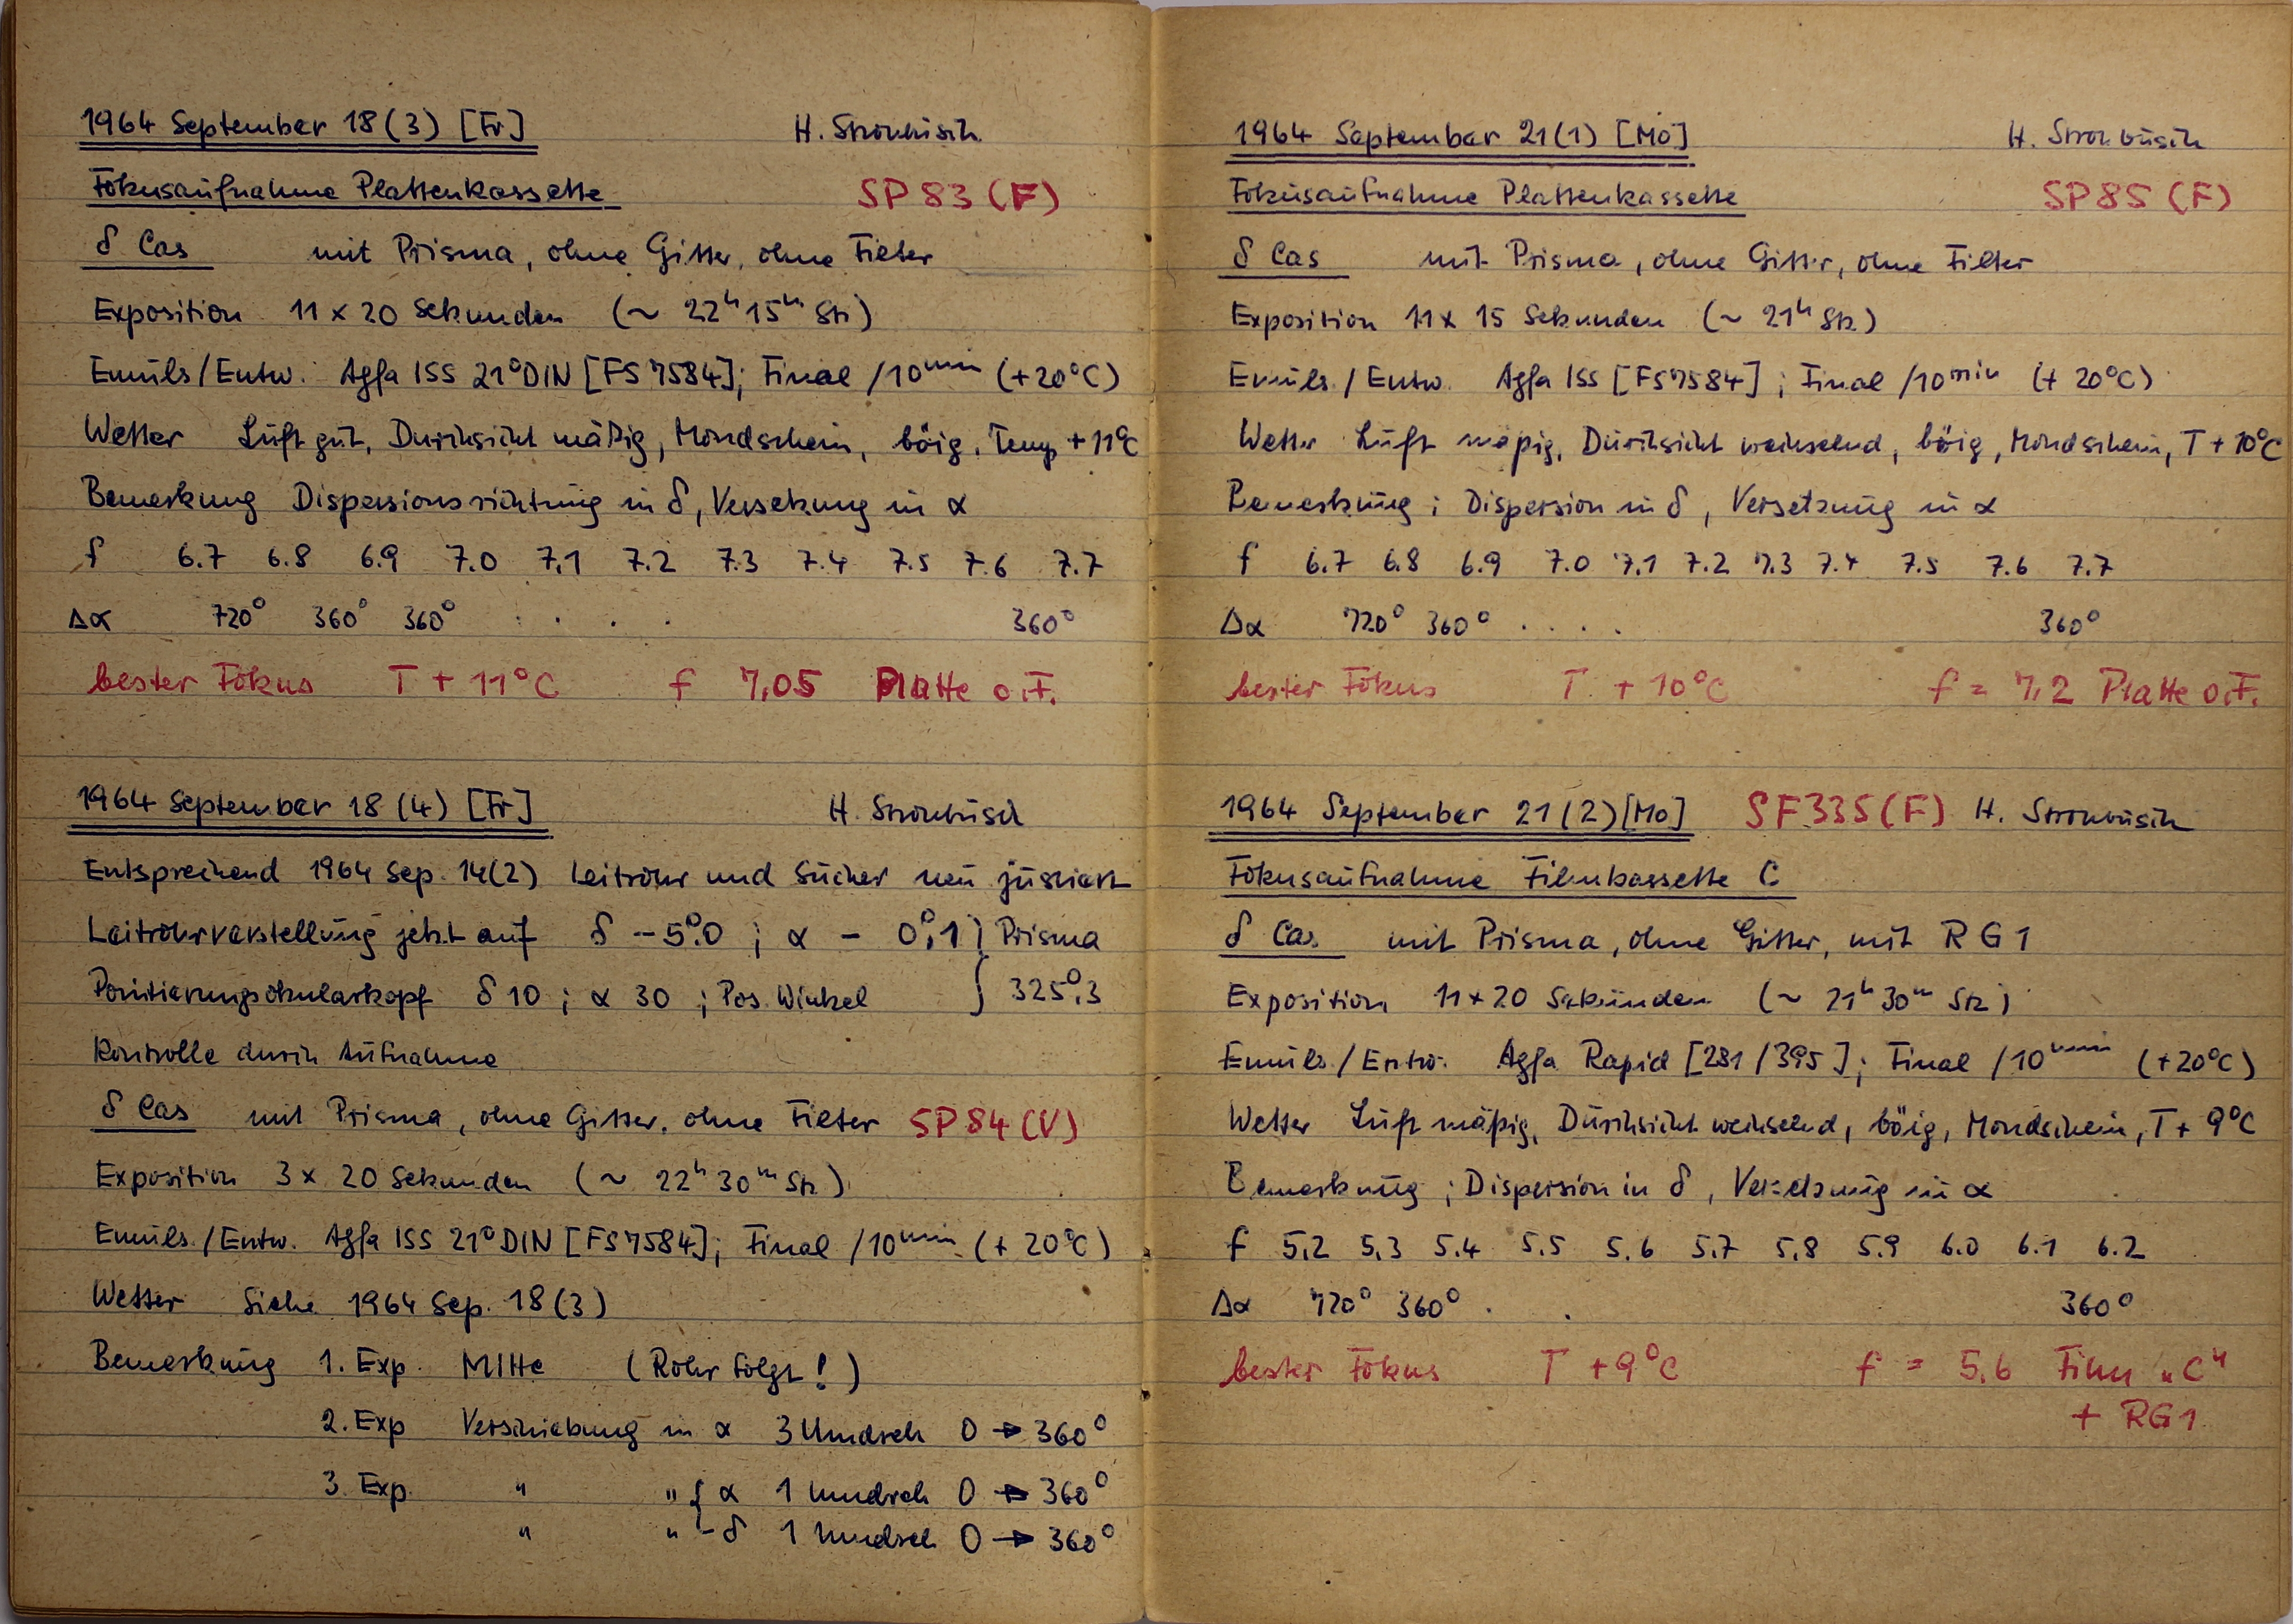 1964 September 18(3) [Fr] H. Strohbusch
Fokusaufnahme Plattenkassette SP 83 (F)
δ Cas mit Prisma, ohne Gitter, ohne Filter
Exposition 11 x 20 Sekunden (~ 22ʰ 15ᵐ Stz)
Emuls/Entw. Agfa ISS 21°DIN [FS 7584]; Final /10ᵐⁱⁿ (+20°C)
Wetter Luft gut, Durchsicht mäßig, Mondschein, böig, Temp +11°C
Bemerkung Dispersionsrichtung in δ, Versetzung in α
f 6.7 6.8 6.9 7.0 7.1 7.2 7.3 7.4 7.5 7.6 7.7
Δα 720° 360° 360° . . . . 360°
bester Fokus T + 11°C f 7,05 Platte o.F.
1964 September 18 (4) [Fr] H. Strohbusch
Entsprechend 1964 Sep. 14(2) Leitrohr und Sucher neu justiert
Leitrohrverstellung jetzt auf δ -5°.0 ; α - 0°,1 } Prisma
Positierungsokularkopf δ 10 ; α 30 ; Pos. Winkel } 325°,3
Kontrolle durch Aufnahme
δ Cas mit Prisma, ohne Gitter, ohne Filter SP 84 (V)
Exposition 3 x 20 Sekunden (~ 22ʰ 30ᵐ Stz)
Emuls./Entw. Agfa ISS 21° DIN [FS 7584]; Final /10ᵐⁱⁿ (+ 20°C)
Wetter Siehe 1964 Sep. 18(3)
Bemerkung 1. Exp. Mitte (Rohr folgt!)
2. Exp Verschiebung in α 3 Umdreh 0 → 360°
3. Exp. " " { α 1 Umdreh 0 → 360°
" " - δ 1 Umdreh 0 → 360°
1964 September 21(1) [Mo] H. Strohbusch
Fokusaufnahme Plattenkassette SP 85 (F)
δ Cas mit Prisma, ohne Gitter, ohne Filter
Exposition 11 x 15 Sekunden (~ 21ʰ Stz)
Emuls. / Entw. Agfa ISS [FS 7584] ; Final /10ᵐⁱⁿ (+ 20°C)
Wetter Luft mäßig, Durchsicht wechselnd, böig, Mondschein, T + 10°C
Bemerkung ; Dispersion in δ, Versetzung in α
f 6.7 6.8 6.9 7.0 7.1 7.2 7.3 7.4 7.5 7.6 7.7
Δα 720° 360° . . . . 360°
bester Fokus T + 10°C f = 7,2 Platte o.F.
1964 September 21 (2) [Mo] SF 335 (F) H. Strohbusch
Fokusaufnahme Filmkassette C
δ Cas mit Prisma, ohne Gitter, mit RG1
Exposition 11 x 20 Sekunden (~ 21ʰ 30ᵐ Stz)
Emuls./Entw. Agfa Rapid [281/395]; Final /10ᵐⁱⁿ (+20°C)
Wetter Luft mäßig, Durchsicht wechselnd, böig, Mondschein, T + 9°C
Bemerkung ; Dispersion in δ, Versetzung in α
f 5.2 5.3 5.4 5.5 5.6 5.7 5.8 5.9 6.0 6.1 6.2
Δα 720° 360° . . 360°
bester Fokus T + 9°C f = 5.6 Film „C"
+ RG1